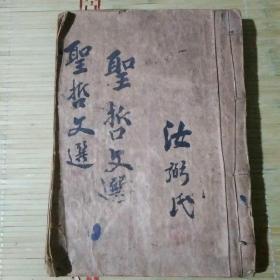 汝弼氏
聖哲文選
聖哲文選